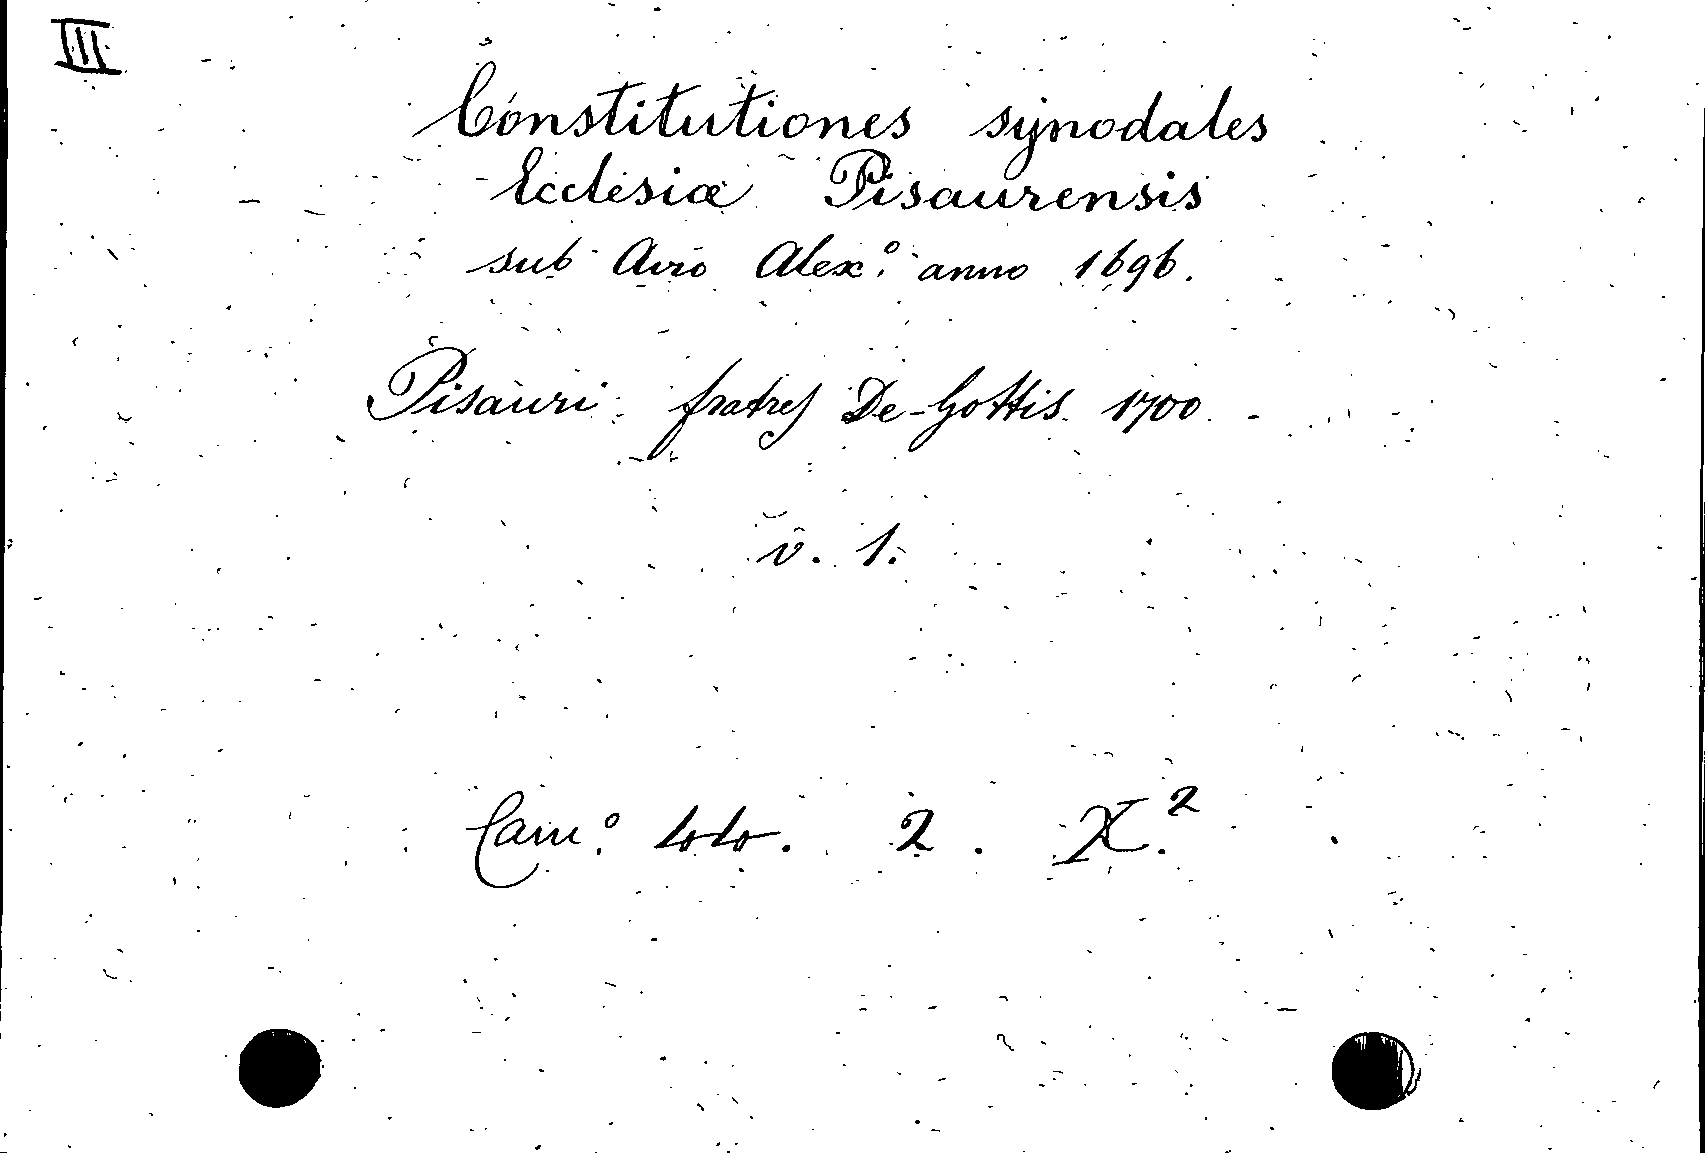 III
Constitutiones synodales
Ecclesiæ Pisaurensis
sub Avio Alex.º anno 1696.
Pisauri fratres De-Gottis 1700
v. 1.
Cam.º 44. 2. X.²